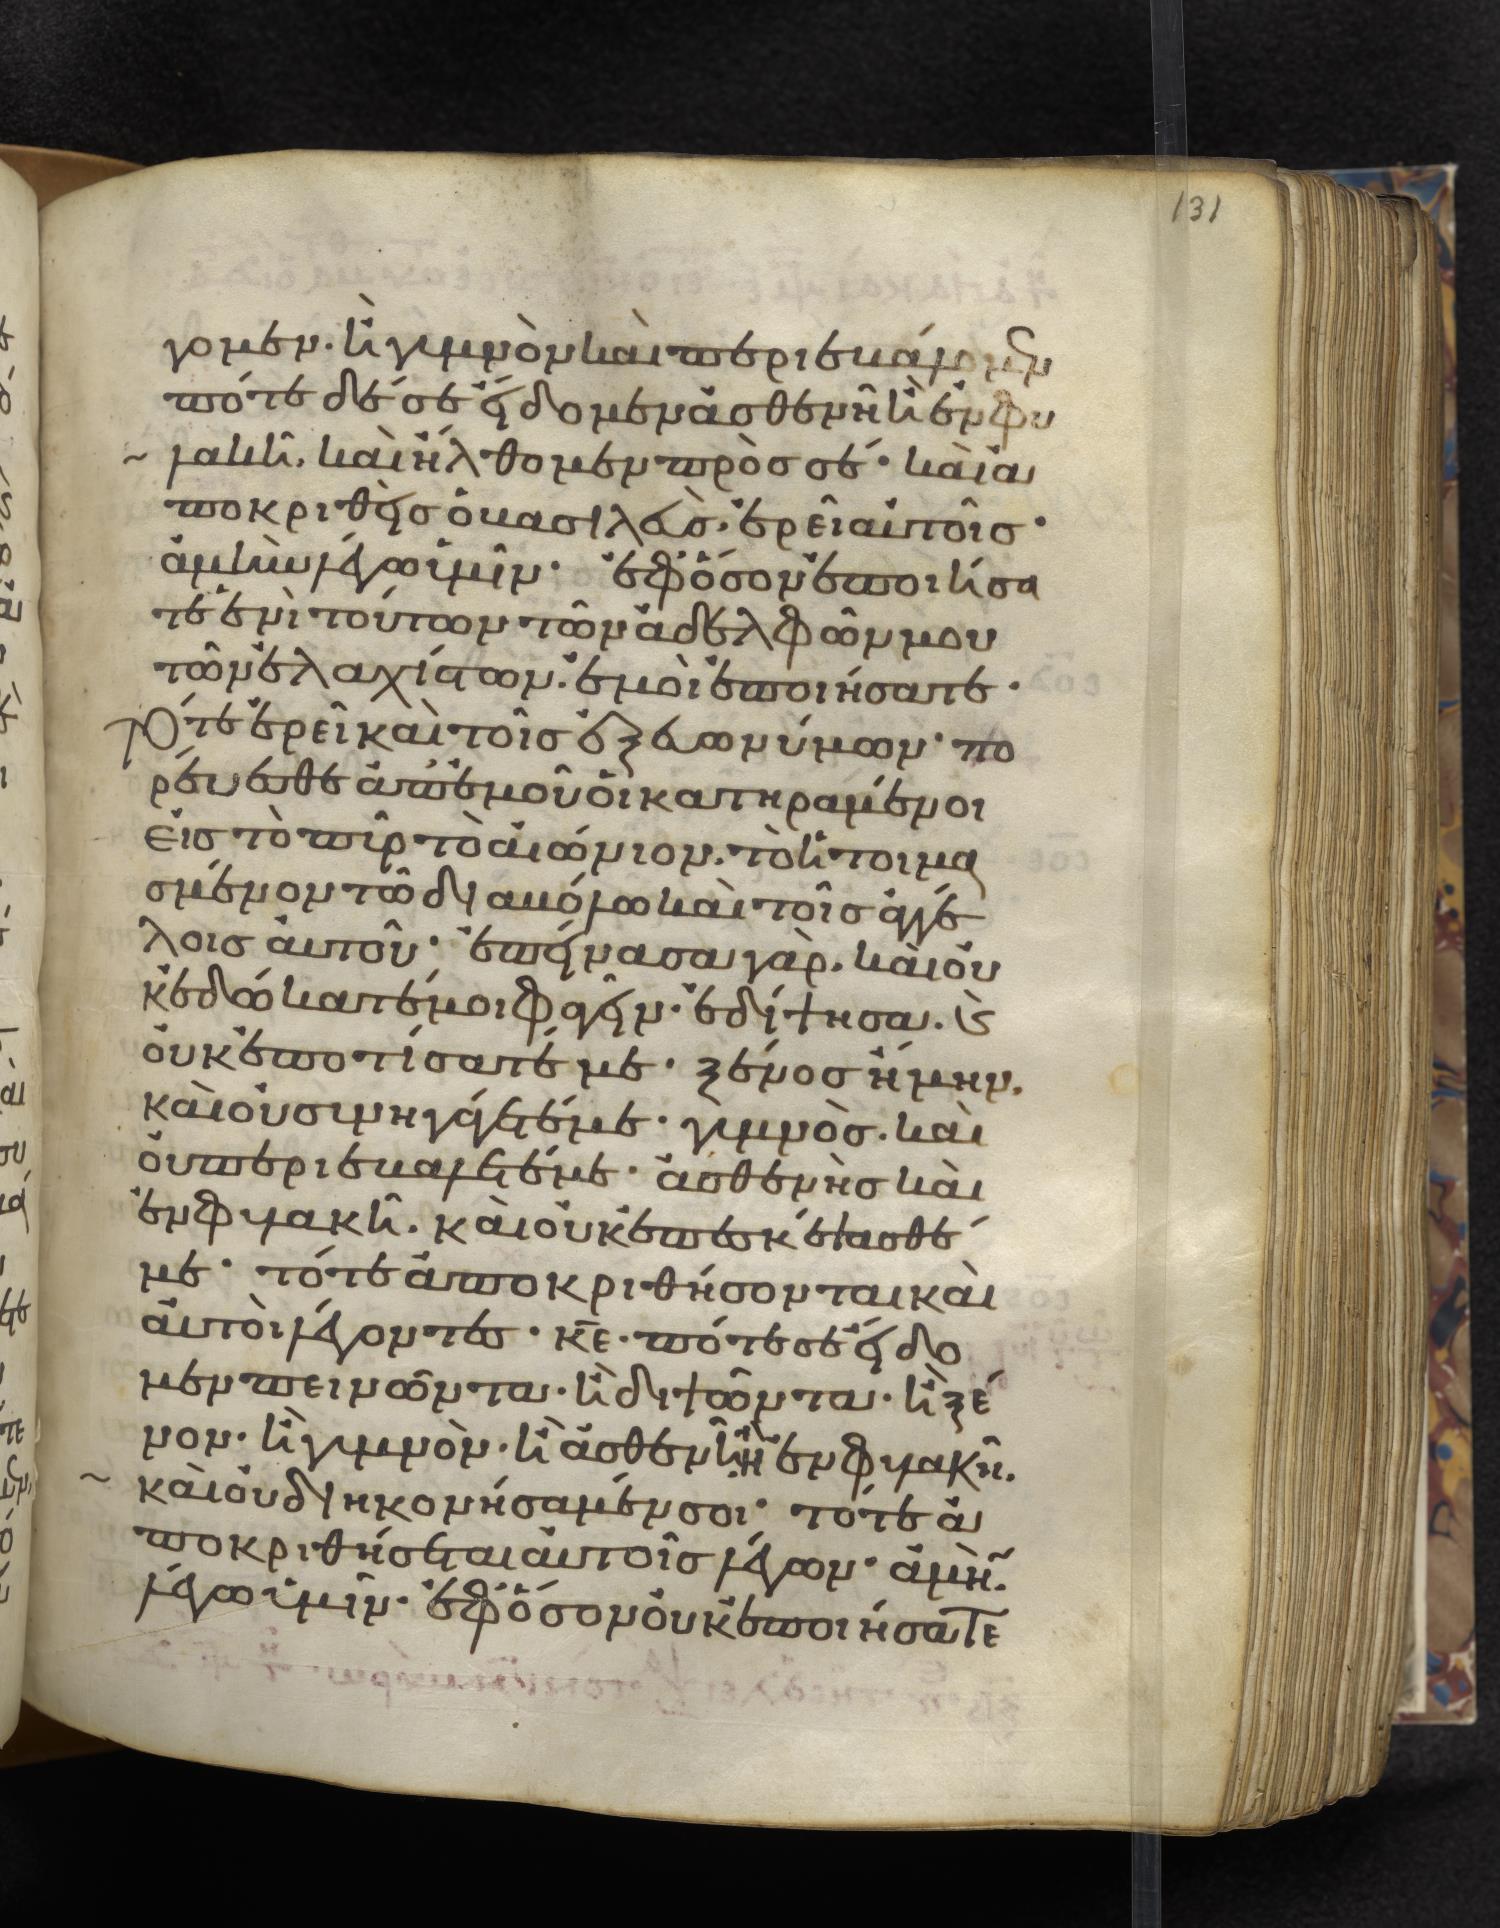 131
γομεν· ἢ γυμνὸν καὶ περιεβάλομεν
πότε δέ σε εἴδομεν ἀσθενῆ ἢ ἐν φυ
λακῆ. καὶ ἤλθομεν πρὸς σέ· καὶ ἀ
ποκριθεὶς ὁ βασιλεὺς· ἐρεῖ αὐτοῖς·
ἀμὴν λέγω ὑμῖν· ἐφ' ὅσον ἐποιήσα
τε ἑνὶ τούτων τῶν ἀδελφῶν μου
τῶν ἐλαχίστων. ἐμοὶ ἐποιήσατε·
Τότε ἐρεῖ καὶ τοῖς ἐξ εὐωνύμων· πο
ρεύεσθε ἀπ' ἐμοῦ οἱ κατηραμένοι
εἰς τὸ πῦρ τὸ αἰώνιον. τὸ ἡτοιμα
σμένον τῶ διαβόλω καὶ τοῖς ἀγγέ
λοις αὐτοῦ· ἐπείνασα γὰρ. καὶ οὐ
κ ἐδώκατέ μοι φαγεῖν· ἐδίψησα. καὶ
οὐκ ἐποτίσατέ με· ξένος ἤμην.
καὶ οὐ συνηγάγετέ με· γυμνὸς. καὶ
οὐ περιεβάλετέ με· ἀσθενὴς καὶ
ἐν φυλακῆ. καὶ οὐκ ἐπεσκέψασθέ
με· τότε ἀποκριθήσονται καὶ
αὐτοὶ λέγοντες· κε· πότε σε εἴδο
μεν πεινῶντα· ἢ διψῶντα· ἢ ξέ
νον· ἢ γυμνὸν· ἢ ἀσθενῆ ἢ ἐν φυλακῆ.
καὶ οὐ διηκονήσαμέν σοι· τότε ἀ
ποκριθήσεται αὐτοῖς λέγων· ἀμὴν
λέγω ὑμῖν· ἐφ' ὅσον οὐκ ἐποιήσατε